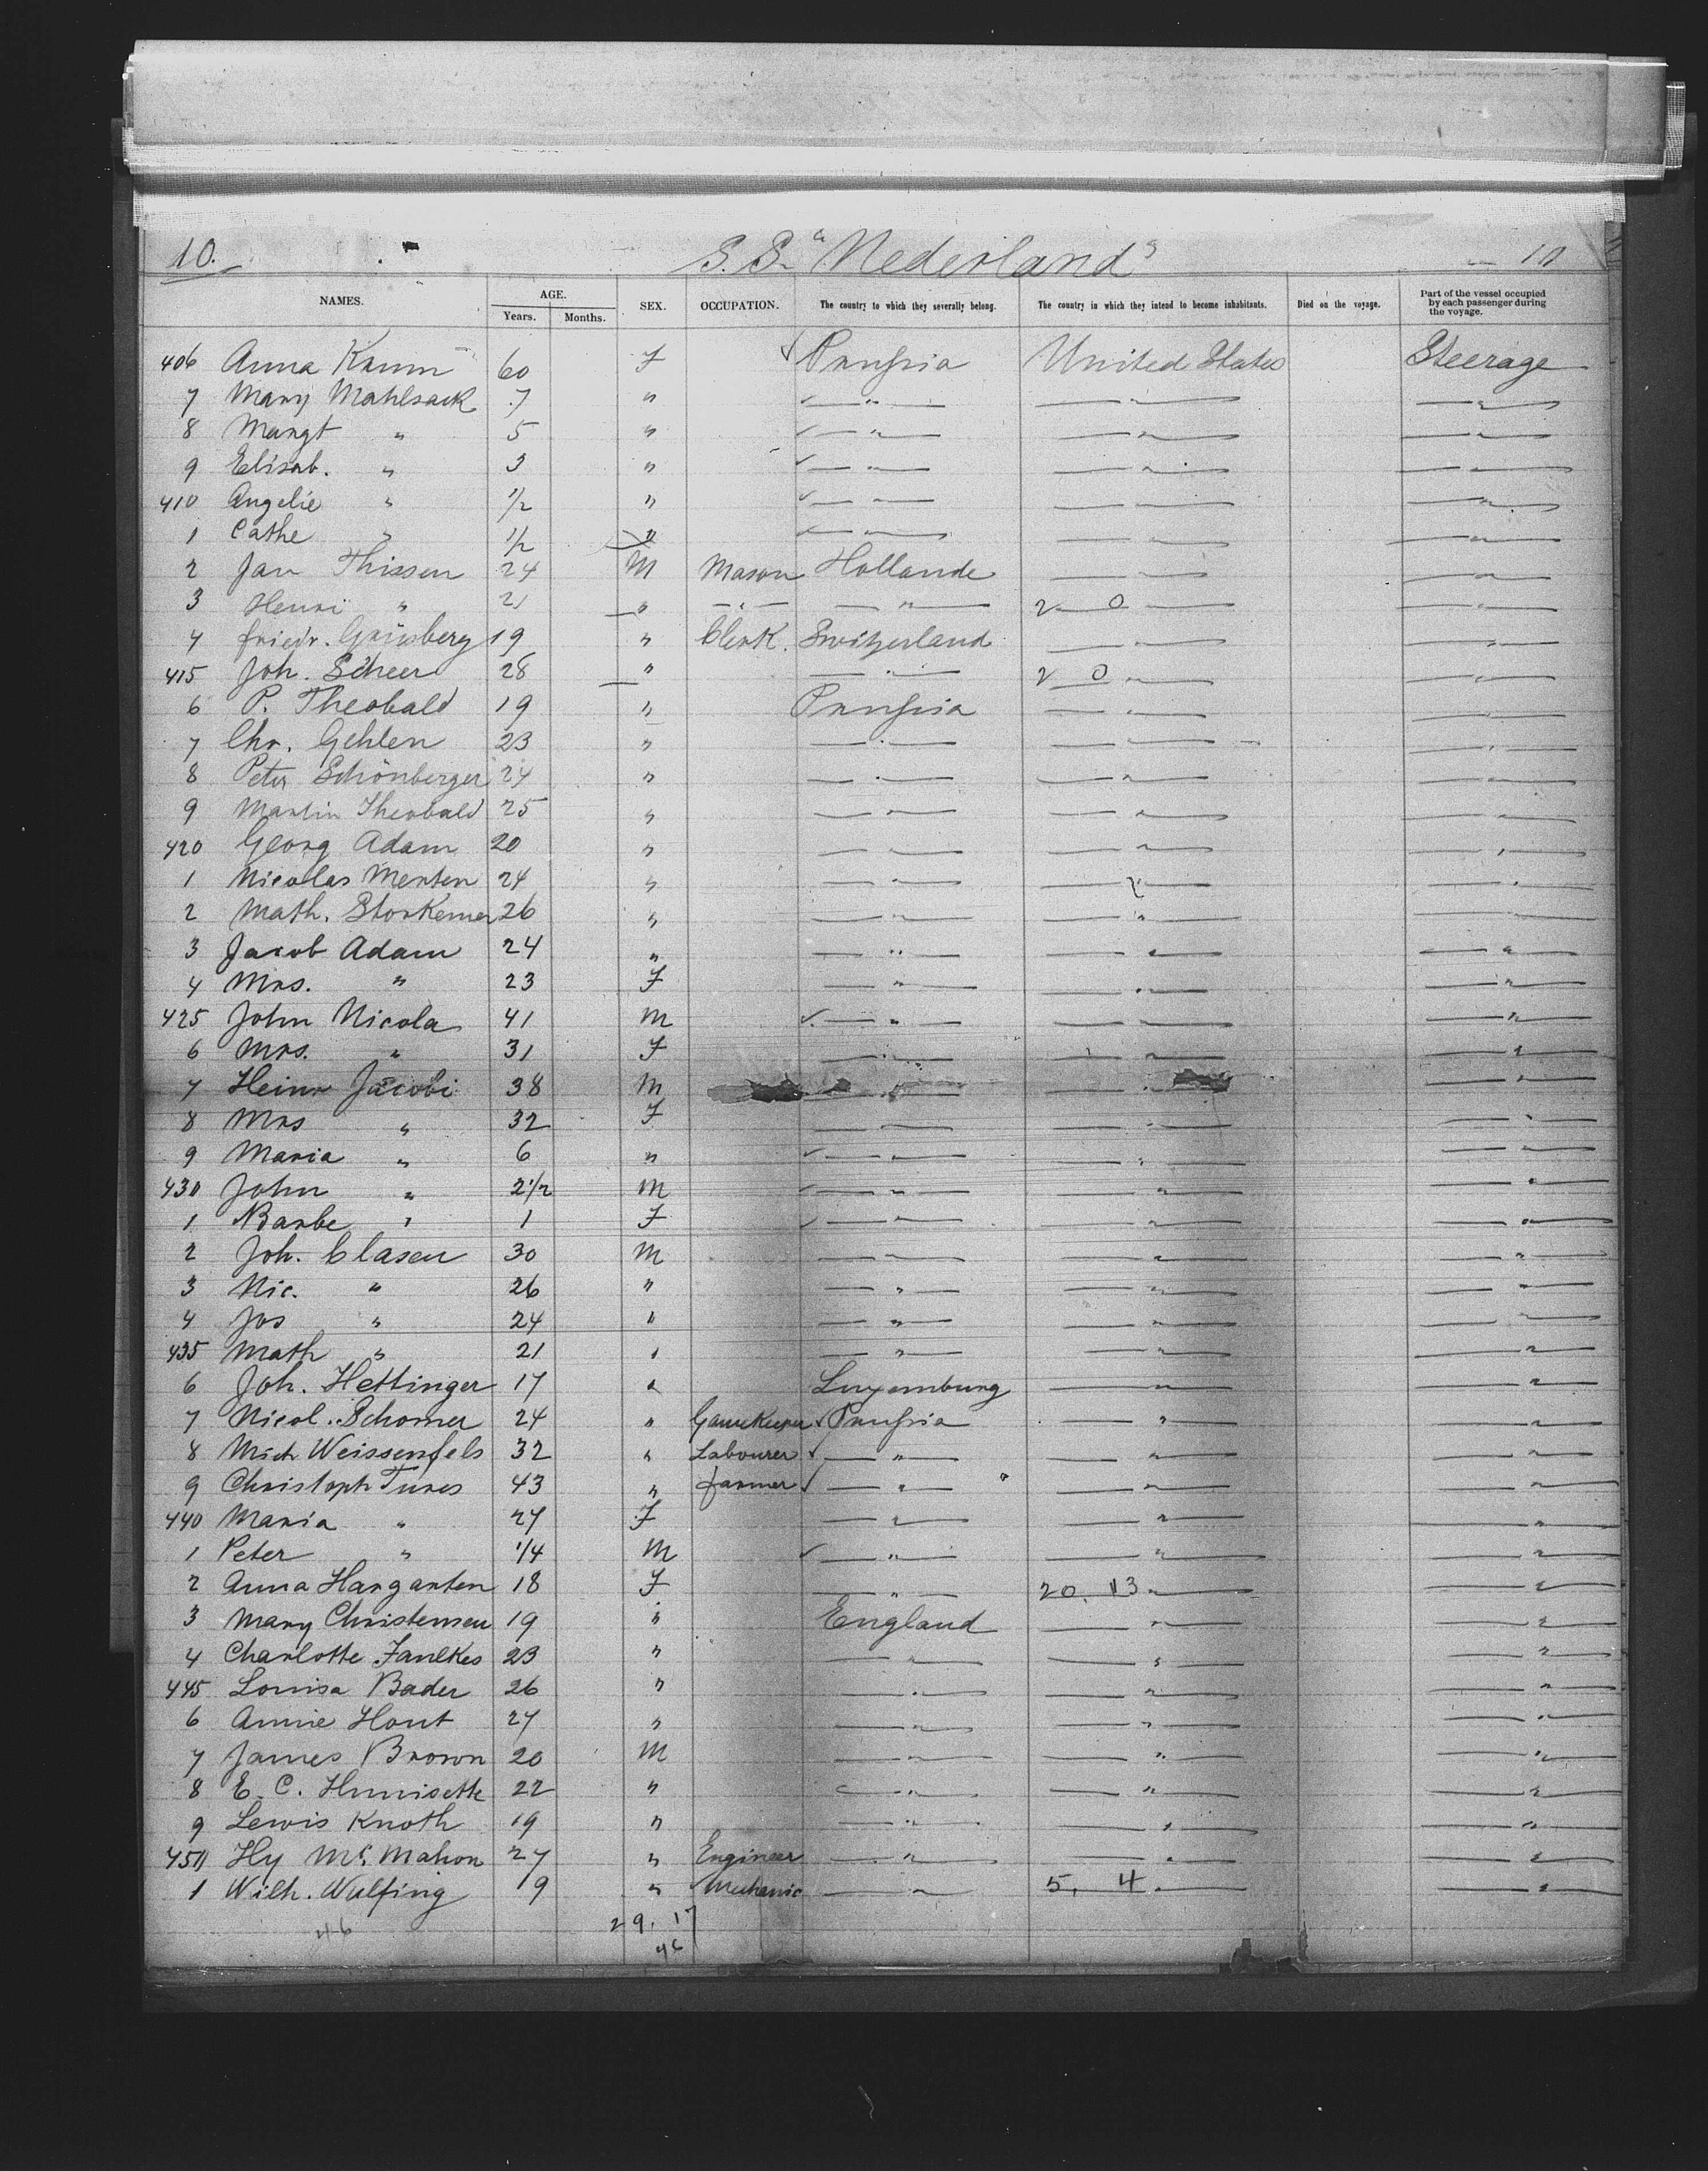 10. S.S. "Nederland" 10
NAMES. AGE. Years. Months. SEX. OCCUPATION. The country to which they severally belong. The country in which they intend to become inhabitants. Died on the voyage. Part of the vessel occupied by each passenger during the voyage.
406 Anna Krum 60 F Prussia United States Steerage
7 Mary Mahlsack 7 " " " "
8 Margt " 5 " " " "
9 Elisab. " 3 " " " "
410 Angelie " 1/2 " " " "
1 Cathe " 1/2 " " " "
2 Jan Thissen 24 M Mason Hollande " "
3 Henri " 21 " " " 2 0 "
4 friedr. Grünberg 19 " Clerk. Switzerland " "
415 Joh. Scheer 28 " " 2 0 " "
6 P. Theobald 19 " Prussia " "
7 Chr. Gehlen 23 " " " "
8 Peter Schönberger 24 " " " "
9 Martin Theobald 25 " " " "
420 Georg Adam 20 " " " "
1 Nicolas Merten 24 " " " "
2 Math. Storkemer 26 " " " "
3 Jacob Adam 24 " " " "
4 Mrs. " 23 F " " "
425 John Nicola 41 M " " "
6 Mrs. " 31 F " " "
7 Heinr Jacobi 38 M " " "
8 Mrs " 32 F " " "
9 Maria " 6 " " " "
430 John " 2 1/2 M " " "
1 Barbe " 1 F " " "
2 Joh. Clasen 30 M " " "
3 Nic. " 26 " " " "
4 Jos " 24 " " " "
435 Math " 21 " " " "
6 Joh. Hettinger 17 " Luxemburg " "
7 Nicol. Schomer 24 " Gamekeeper Prussia " "
8 Mich Weissenfels 32 " Labourer " " "
9 Christoph Tures 43 " farmer " " "
440 Maria " 27 F " " "
1 Peter " 1/4 M " " "
2 Anna Hargarten 18 F " 20. 13 " "
3 Mary Christensen 19 " England " "
4 Charlotte Faulkes 23 " " " "
445 Louisa Bader 26 " " " "
6 Annie Hout 27 " " " "
7 James Brown 20 M " " "
8 E. C. Hunisette 22 " " " "
9 Lewis Knoth 19 " " " "
450 Hy Mc. Mahon 27 " Engineer " " "
1 Wilh. Wulfing 19 " Mechanic " 5. 4 " "
46 29. 17
46